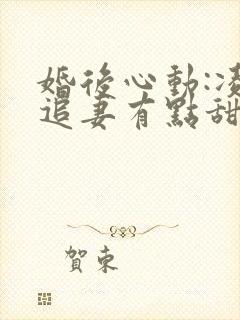 婚後心動:凌
追妻有點甜
賀東